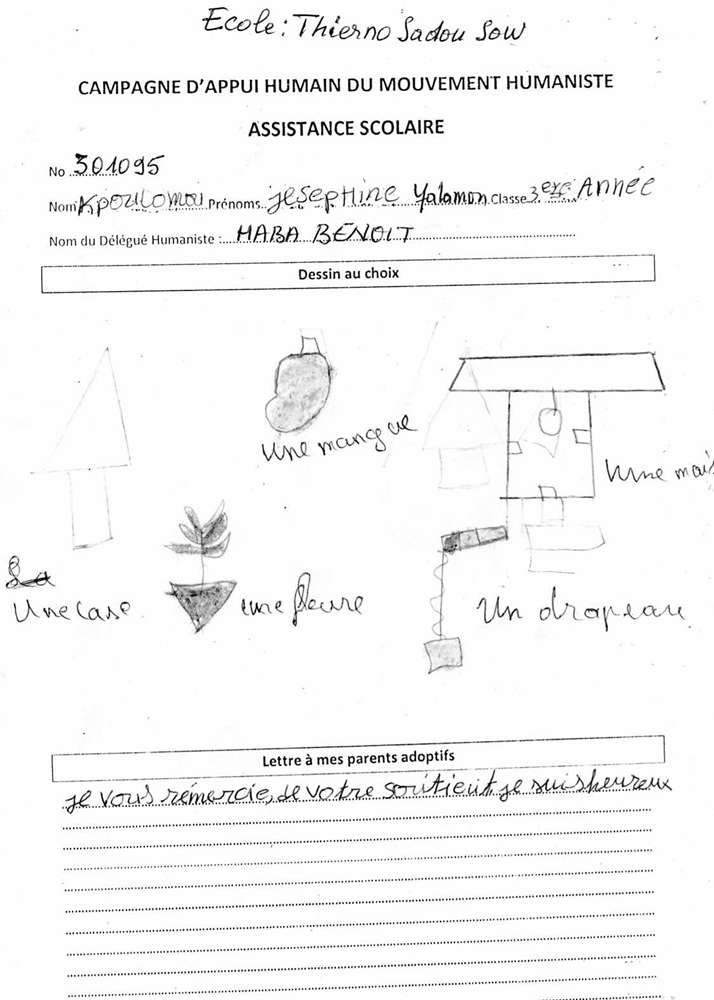 Ecole: Thierno Sadou Sow
CAMPAGNE D'APPUI HUMAIN DU MOUVEMENT HUMANISTE
ASSISTANCE SCOLAIRE
No 301095
Nom Kpoulomou Prénoms JeSepHine Yalamon Classe 3 ere Année
Nom du Délégué Humaniste : HABA BENOIT
Dessin au choix
Une mangue
Une mais
La
Une case
une fleure
Un drapeau
Lettre à mes parents adoptifs
je vous rémercie, de votre soutient, je suis heureux